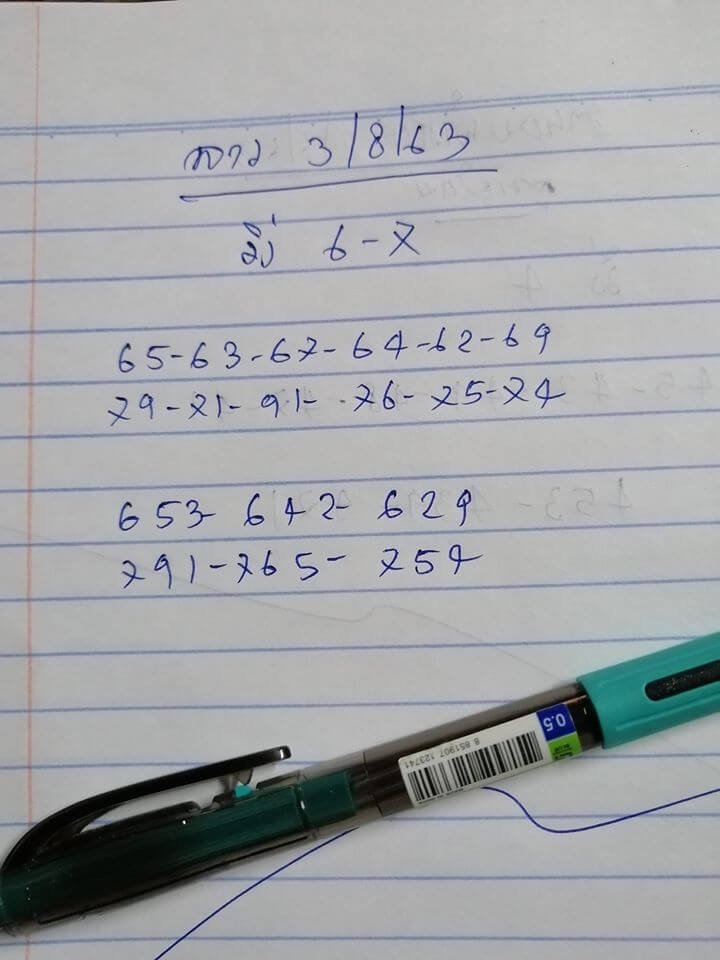 ลาว 3/8/63
วิ่ง 6-7
65-63-67-64-62-69
79-71-91-76-75-74
653-642-629
791-765-754
0.5
BLUE
8 851907 123741